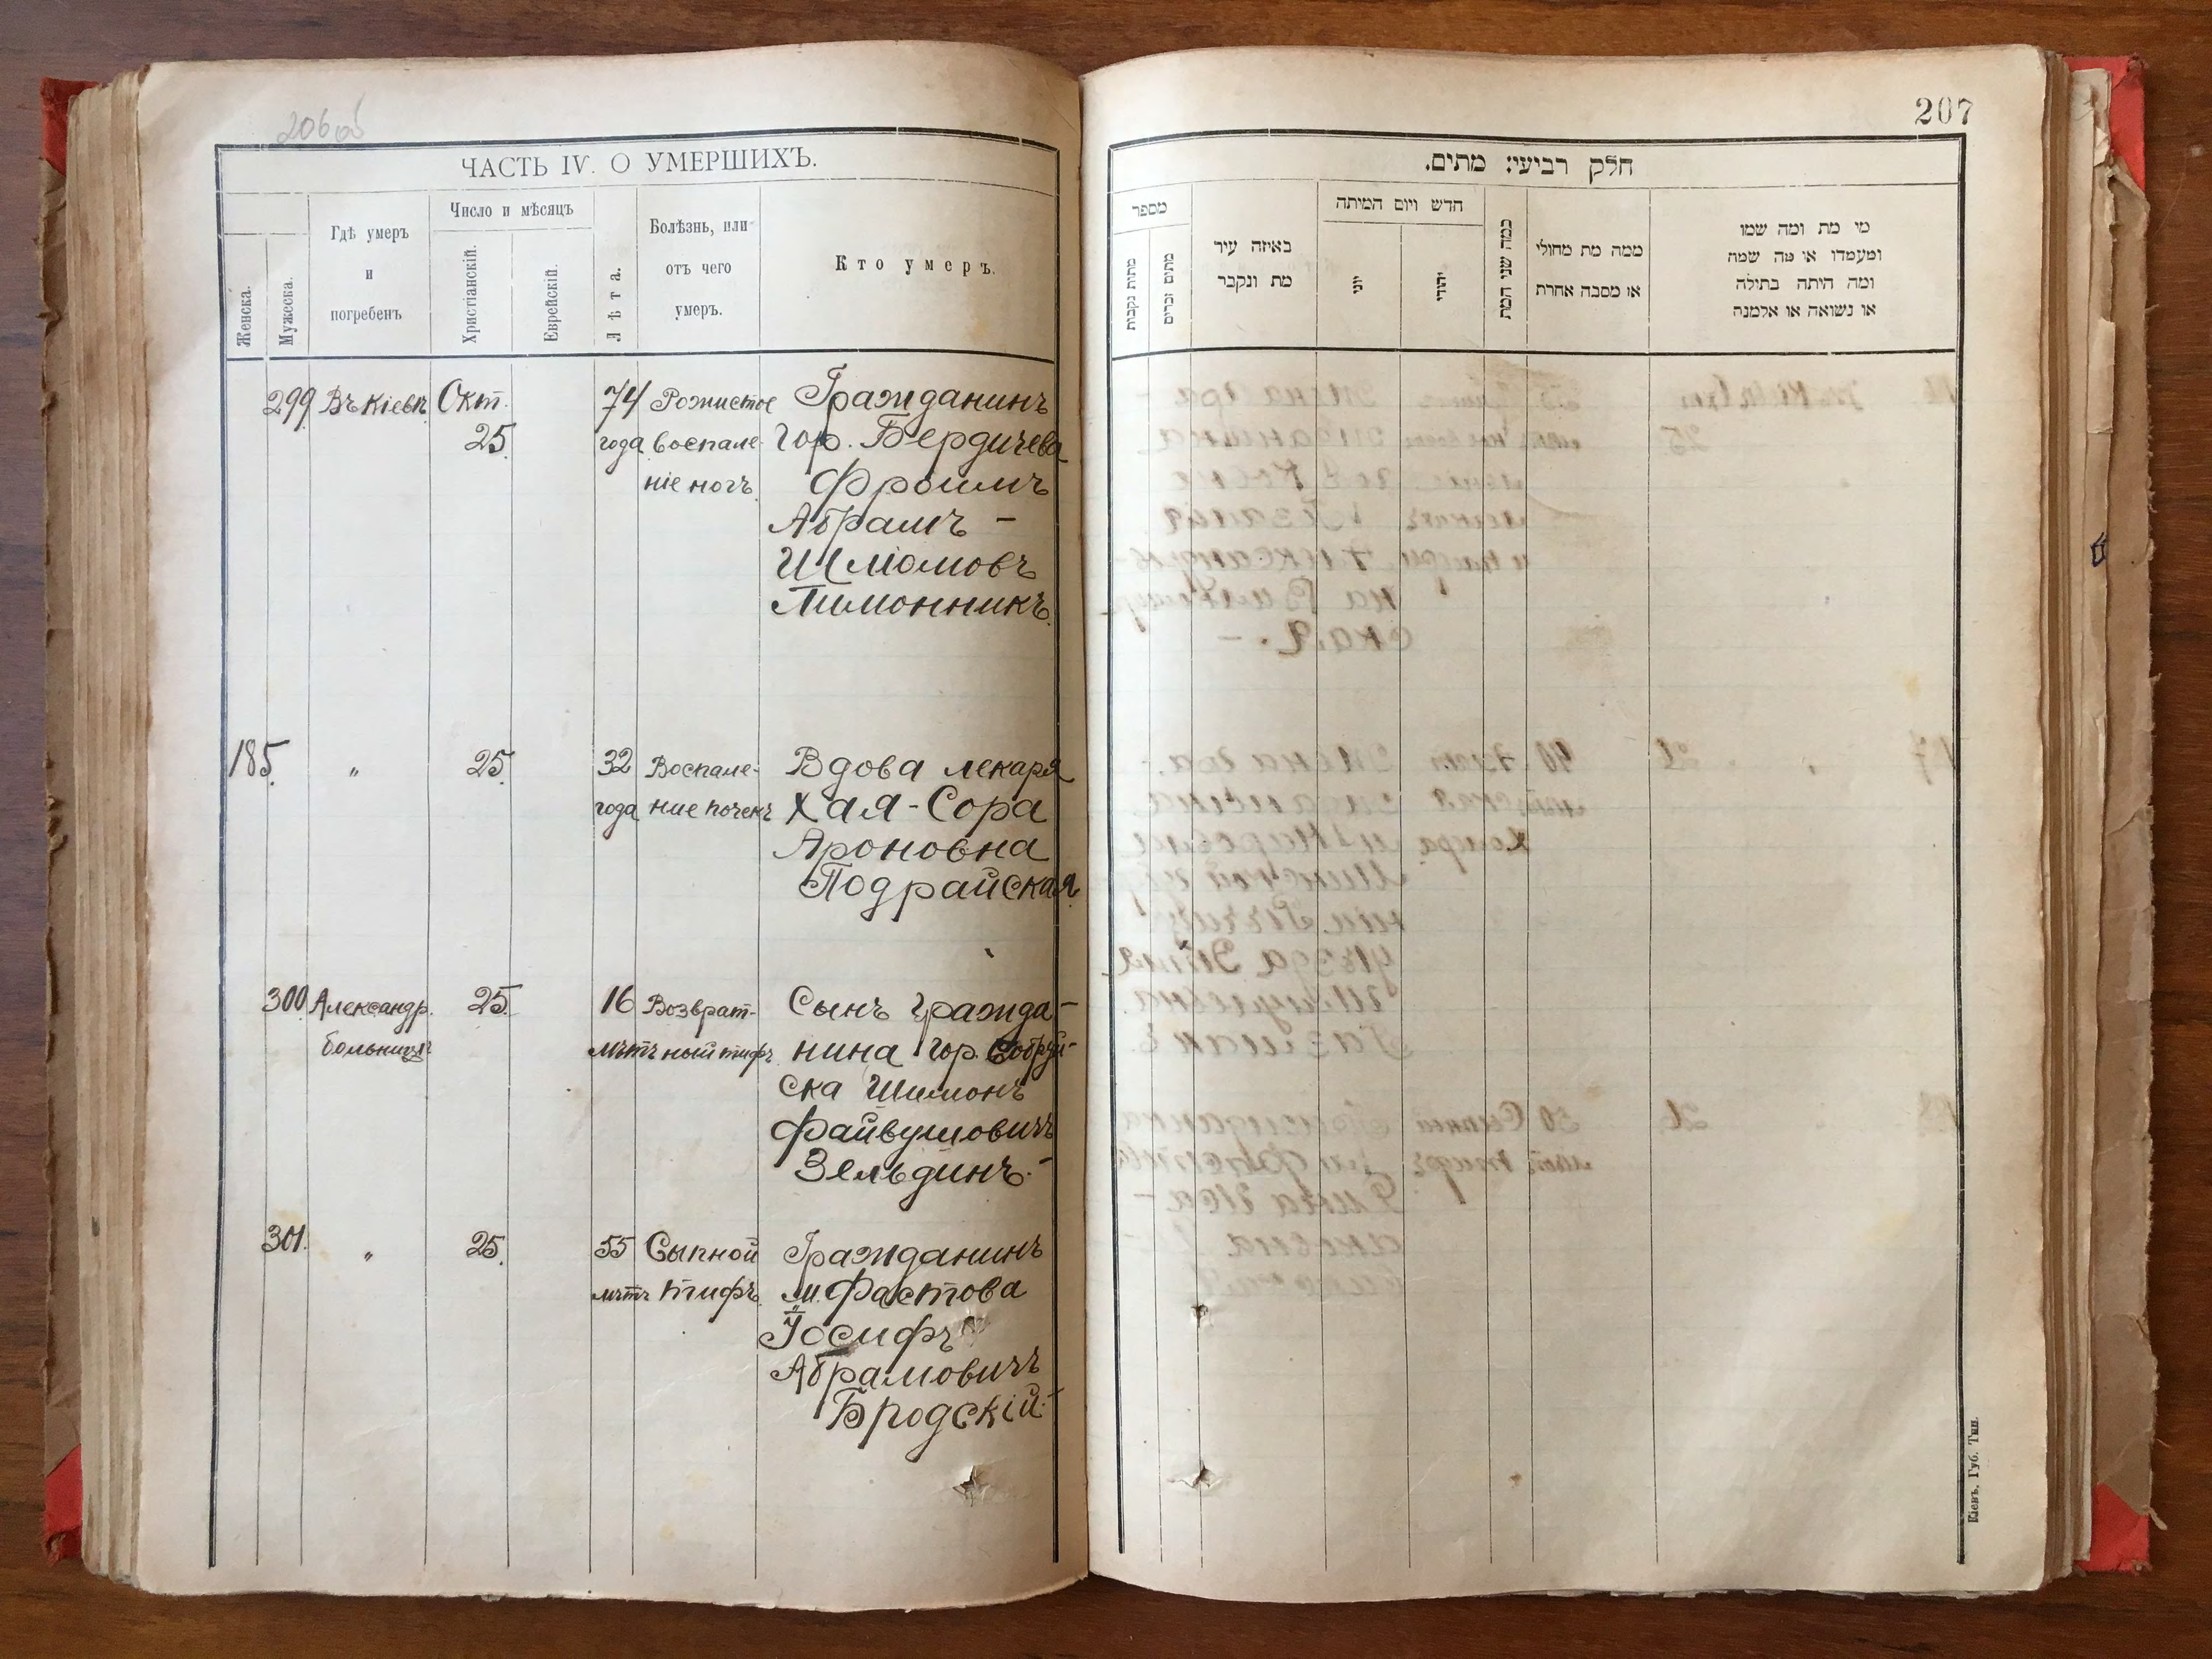 206об
ЧАСТЬ IV. О УМЕРШИХЪ.
Женска.
Мужеска.
Гдѣ умеръ
и
погребенъ
Число и мѣсяцъ
Христіанскій.
Еврейскій.
Лѣта.
Болѣзнь, или
отъ чего
умеръ.
Кто умеръ.
299 Въ Кіевѣ Окт. 74 Рожистое Гражданинъ
25. года воспале- гор. Бердичева
ніе ногъ. Фроимъ
Абрамъ -
Шліомовъ
Лимонникъ.
185. " 25. 32 Воспале- Вдова лекаря
года ние почекъ Хая-Сора
Ароновна
Подрайская.
300 Александр. 25. 16 Возврат- Сынъ гражда-
больница лѣтъ ный тифъ нина гор. Бобруй-
ска Шимонъ
Файвушовичъ
Зельдинъ.-
301. " 25. 55 Сыпной Гражданинъ
лѣтъ тифъ. м. Фастова
Іосифъ
Абрамовичъ
Бродскій.-
207
חלק רביעי: מתים.
מספר
מתות נקבות
מתים זכרים
באיזה עיר
מת ונקבר
חדש ויום המיתה
יוני
יהודי
כמה שני המת
ממה מת מחולי
או מסבה אחרת
מי מת ומה שמו
ומעמדו או מה שמה
ומה היתה בתולה
או נשואה או אלמנה
Кіевъ, Губ. Тип.